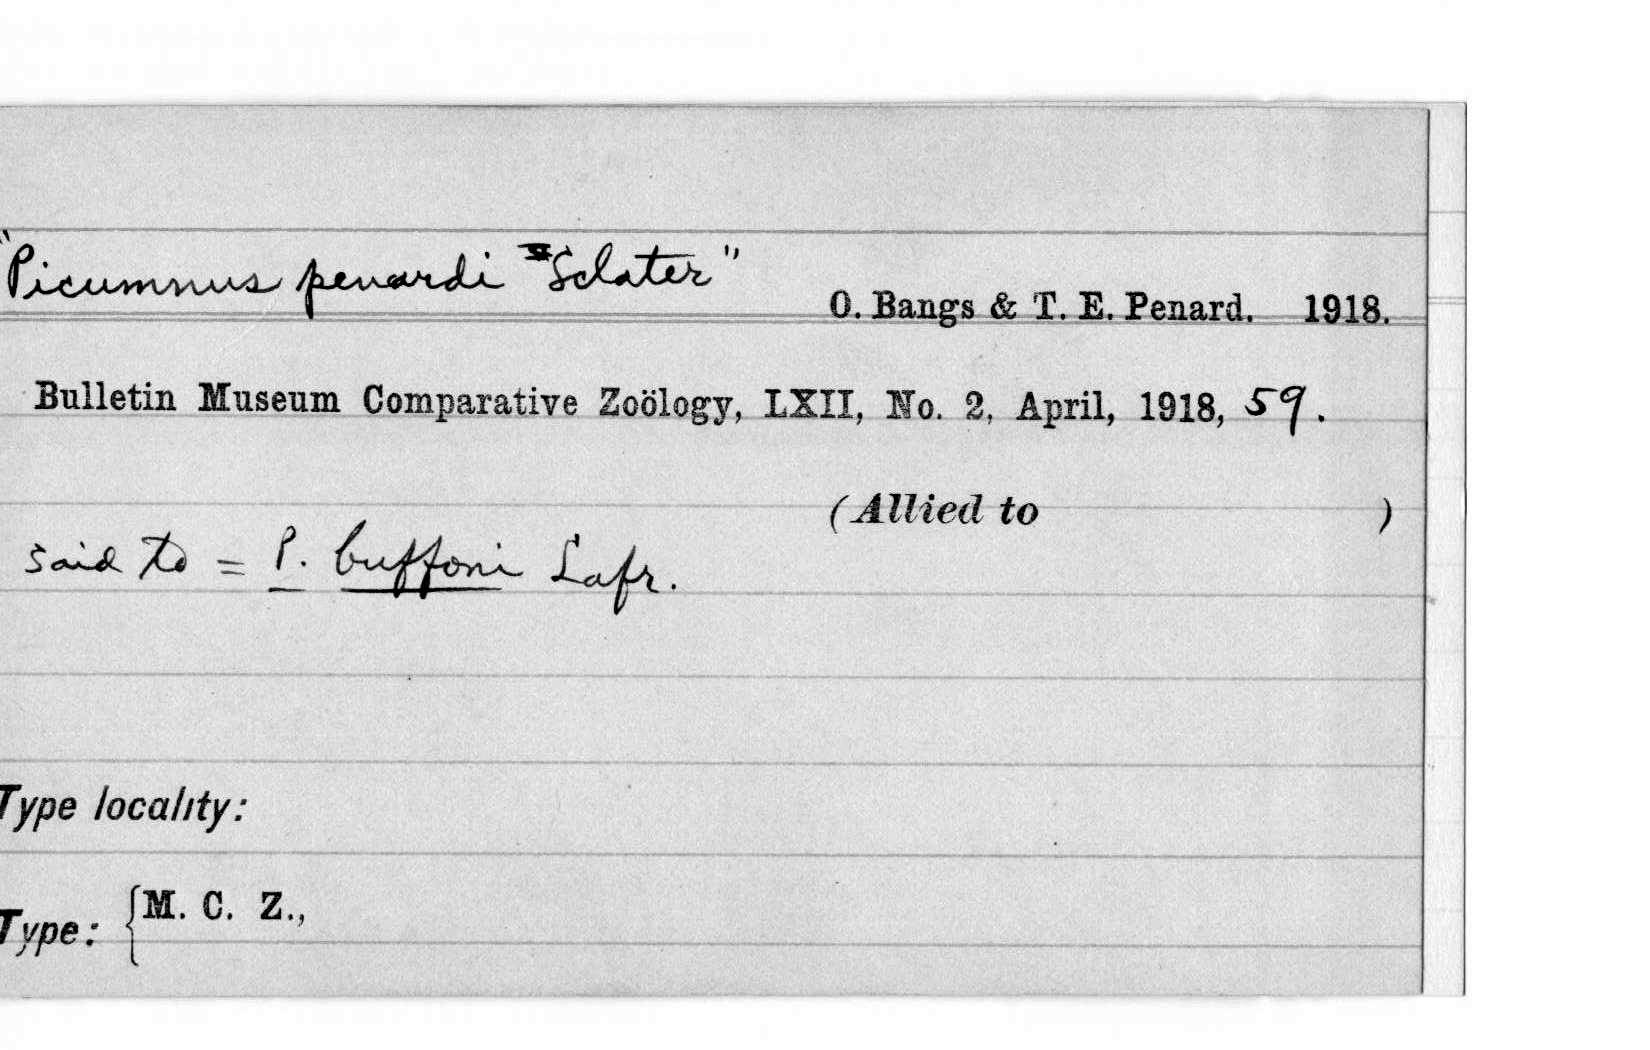 "Picumnus penardi Sclater"
O. Bangs & T. E. Penard. 1918.
Bulletin Museum Comparative Zoölogy, LXII, No. 2, April, 1918, 59.
(Allied to )
said to = P. buffoni Lafr.
Type locality:
Type: {M. C. Z.,